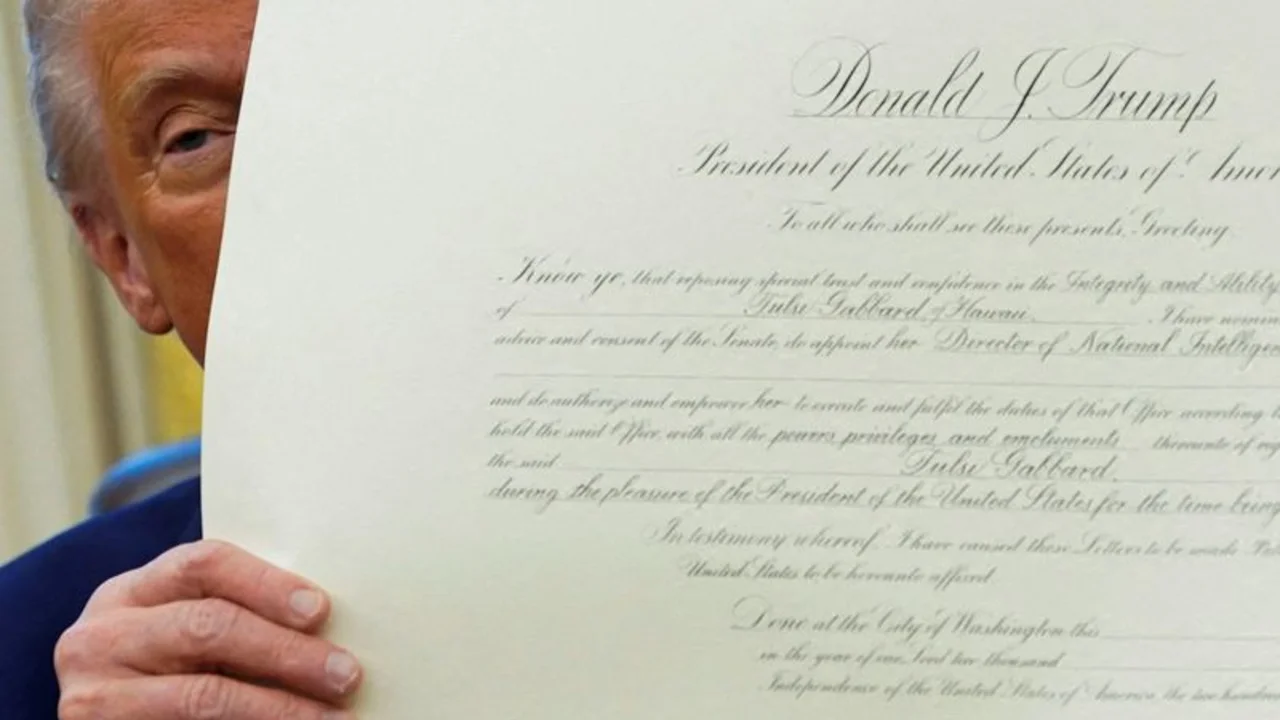 Donald J. Trump
President of the United States of Amer
To all who shall see these presents, Greeting.
Know ye, that reposing special trust and confidence in the Integrity and Ability
of Tulsi Gabbard, of Hawaii, I have nomin
advice and consent of the Senate, do appoint her Director of National Intelligen
and do authorize and empower her to execute and fulfil the duties of that Office according t
hold the said Office, with all the powers, privileges and emoluments thereunto of rig
the said Tulsi Gabbard,
during the pleasure of the President of the United States for the time being
In testimony whereof, I have caused these Letters to be made Pat
United States to be hereunto affixed
Done at the City of Washington this
in the year of our Lord two thousand
Independence of the United States of America the two hundred